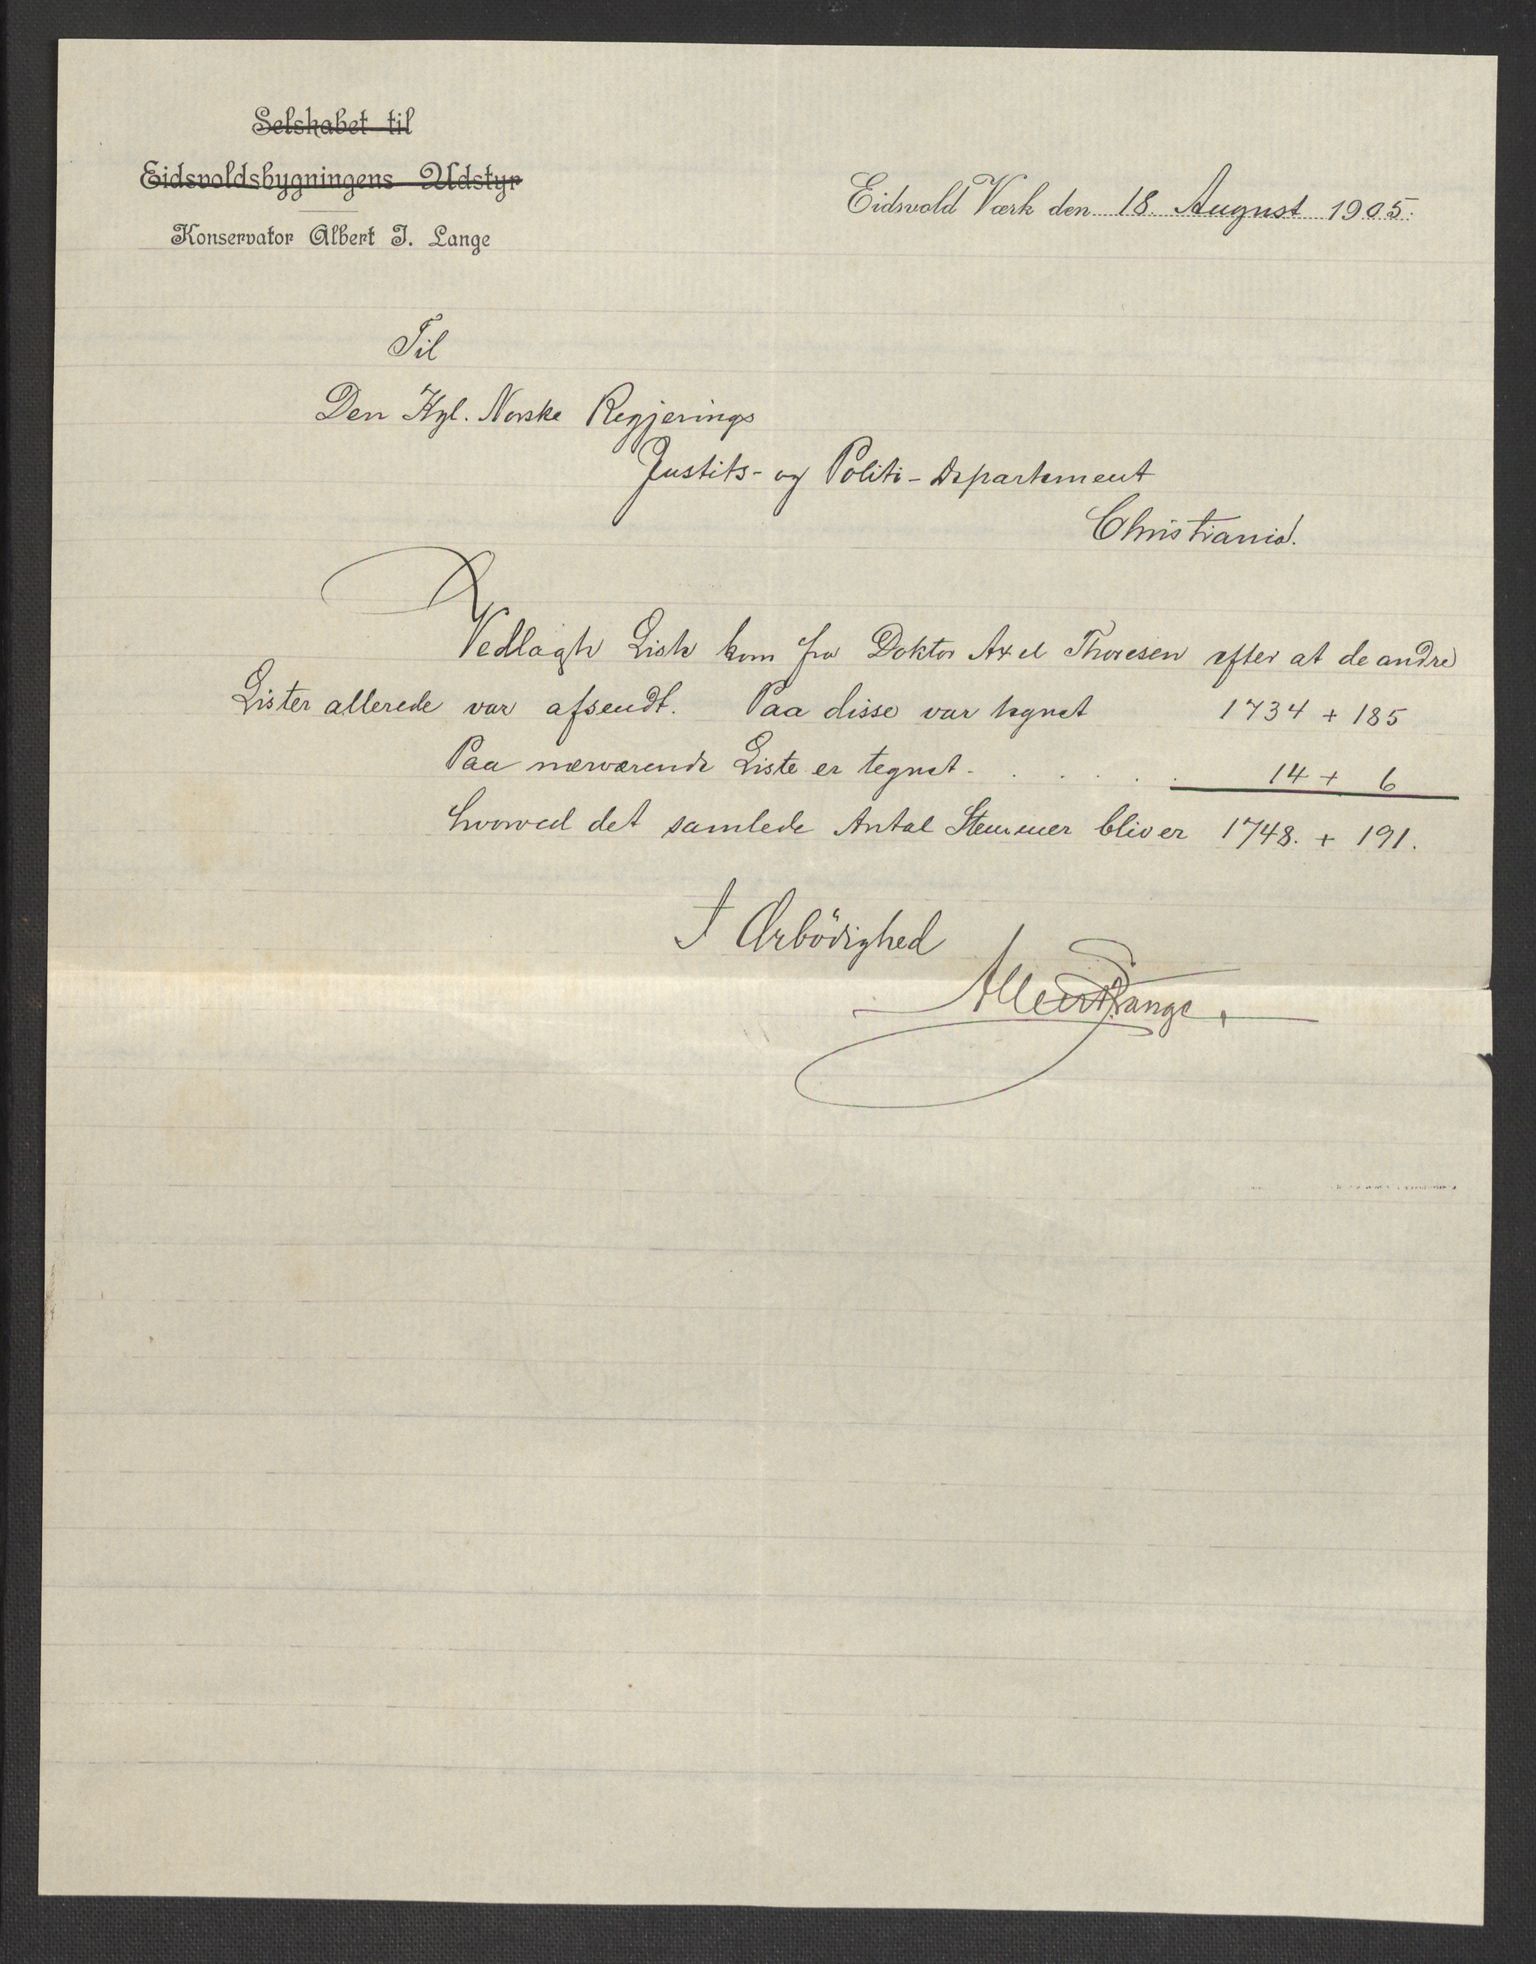 Selskabet til
Eidsvoldsbygningens Udstyr
Konservator Albert J. Lange
Eidsvold Værk den 18. August 1905.
Til
Den Kgl. Norske Regjerings
Justits- og Politi-Departement
Christiania.
Vedlagte Liste kom fra Doktor Axel Thoresen efter at de andre
Lister allerede var afsendt. Paa disse var tegnet 1734 + 185
Paa nærværende Liste er tegnet - . . . . . 14 + 6
hvorved det samlede Antal Stemmer bliver 1748. + 191.
I Ærbödighed
Albert J. Lange.